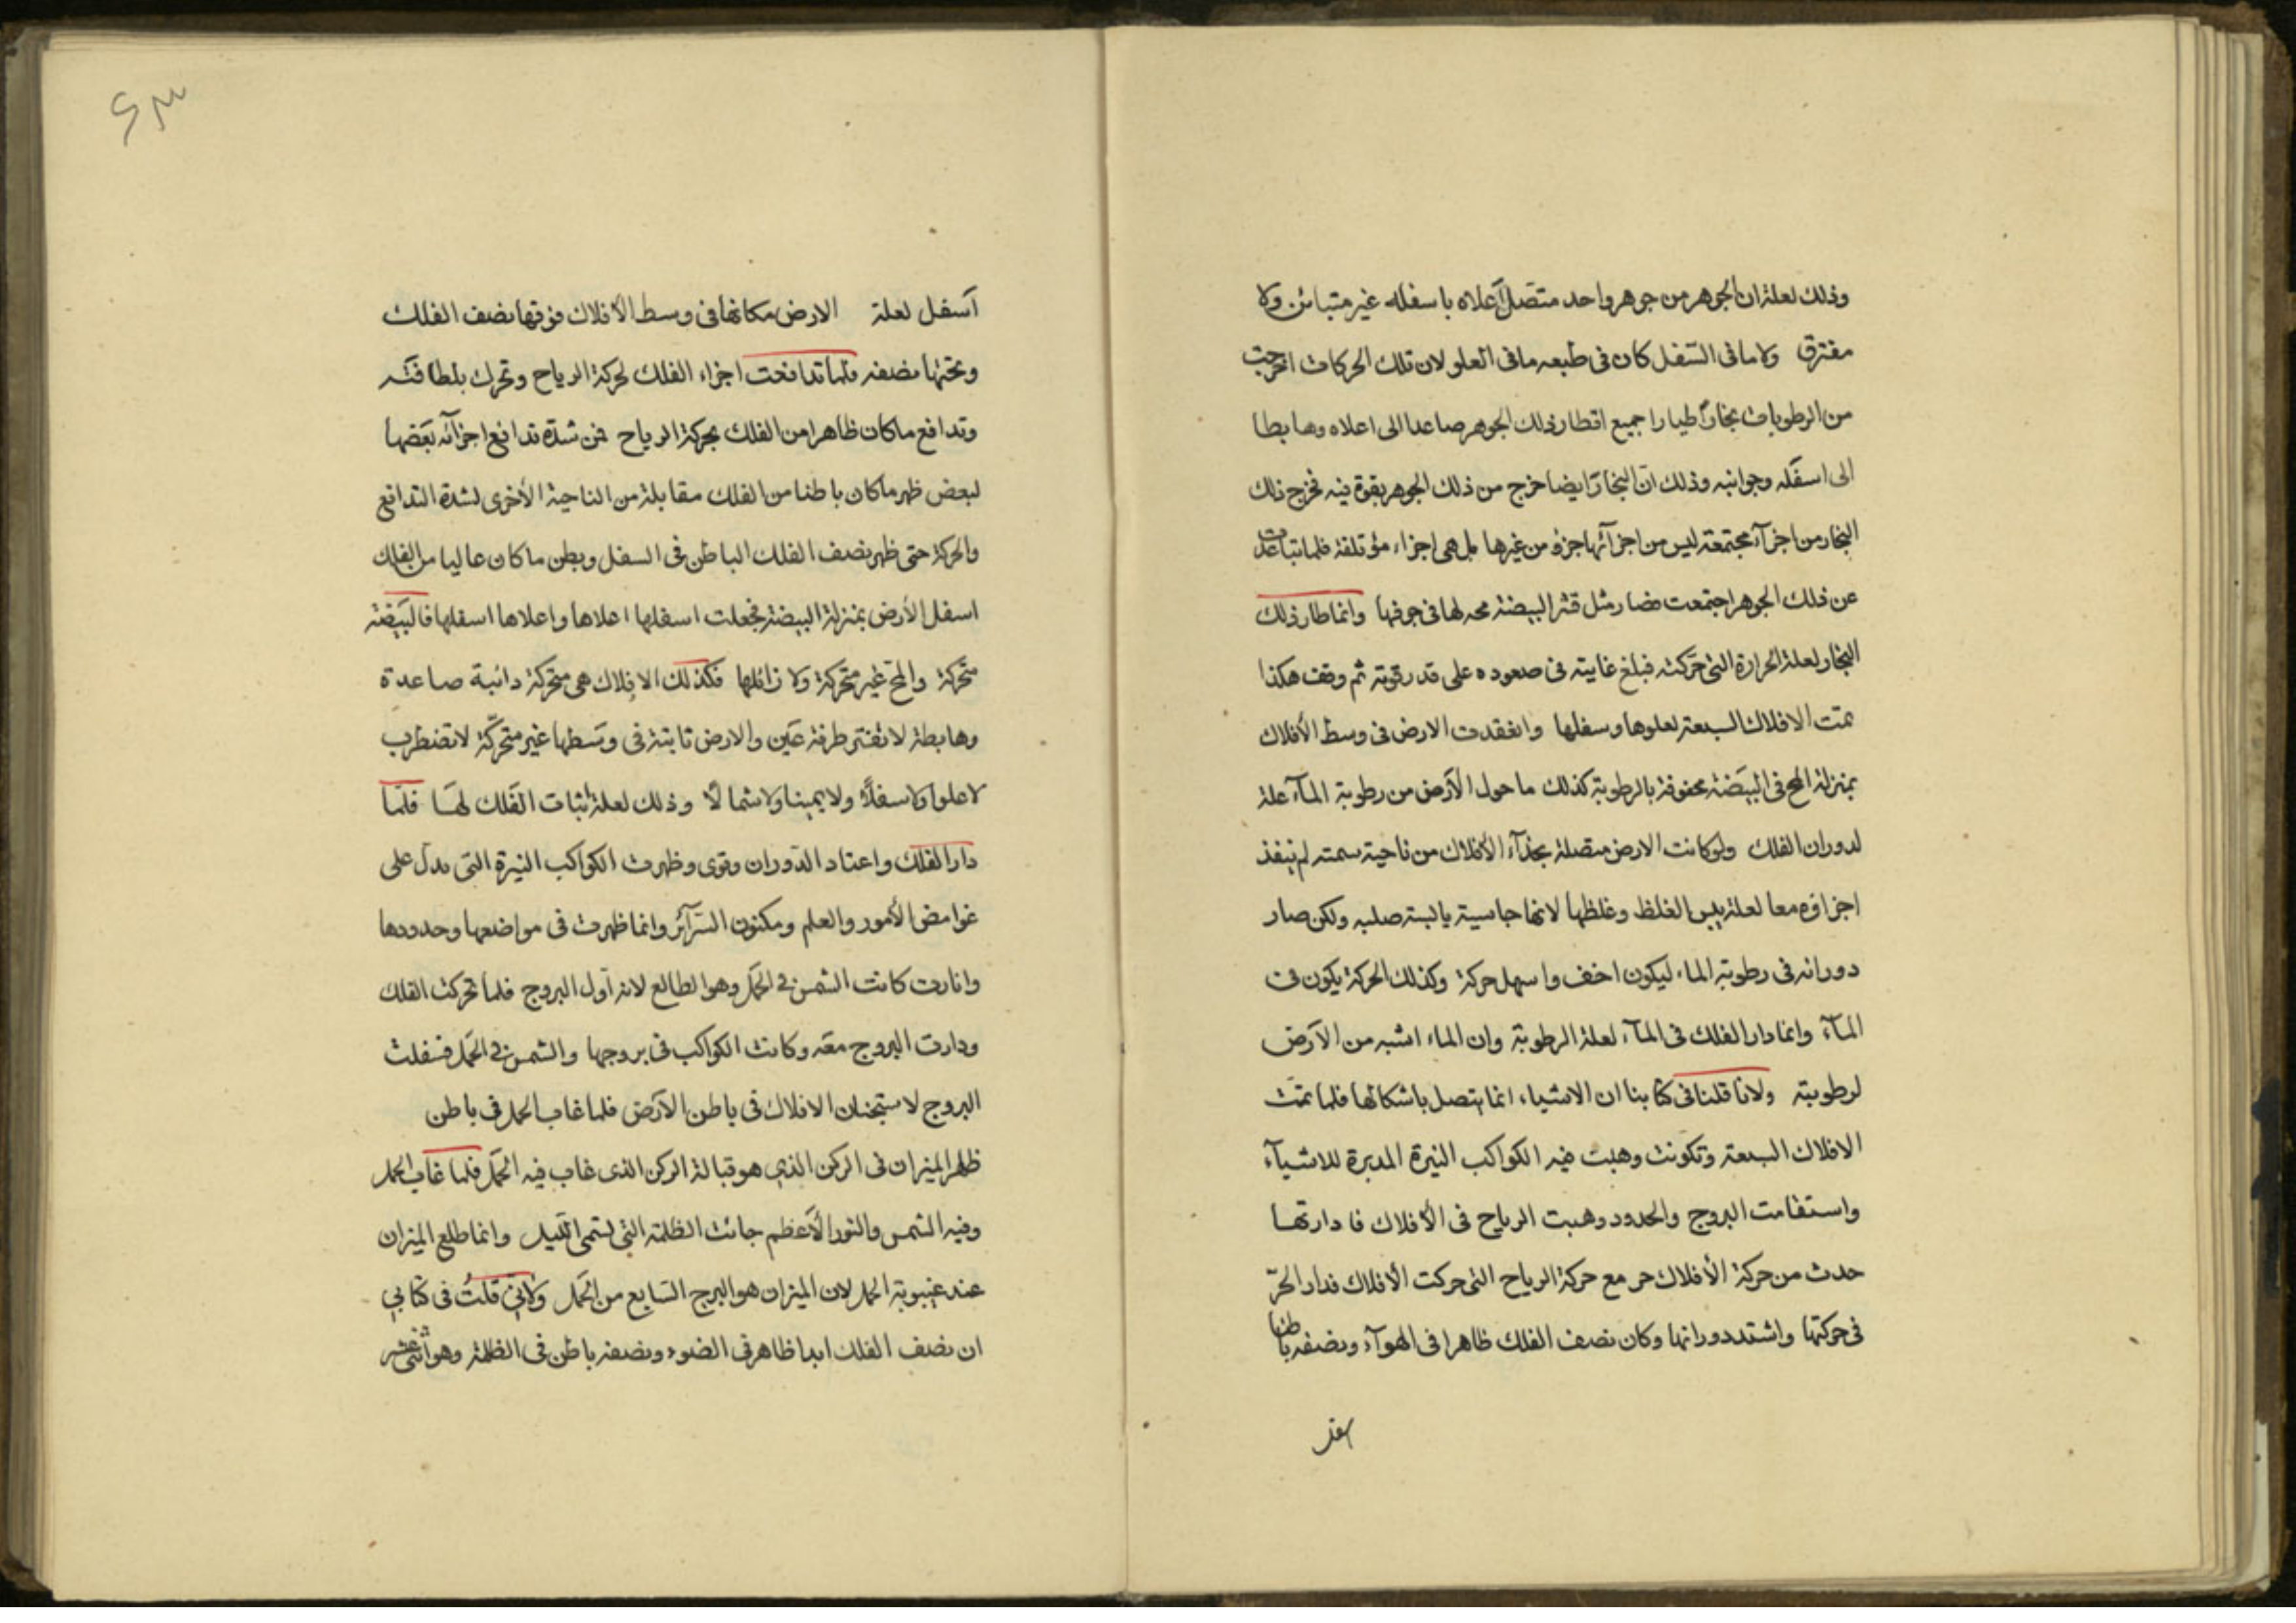 وذلك لعلة ان الجوهر من جوهر واحد متصل اعلاه باسفله غير متباين ولا
مفترق ولا ما فى السّفل كان فى طبعه ما فى العلو لان تلك الحركات اخرجت
من الرطوبات بخاراً طيارا جميع اقطار ذلك الجوهر صاعدا الى اعلاه وهابطا
الى اسفله وجوانبه وذلك انّ البخار ايضا خرج من ذلك الجوهر بقوة فيه فخرج ذلك
البخار من اجزآء مجتمعة ليس من اجزآئها جزؤ من غيرها بل هى اجزاء مؤتلفة فلما تباعدت
عن ذلك الجوهر اجتمعت فصار مثل قشر البيضة محه لها فى جوفها وانما طار ذلك
البخار لعلة الحرارة التى حركته فبلغ غايته فى صعوده على قدر قوته ثم وقف هكذا
تمت الافلاك السبعة لعلوها وسفلها وانعقدت الارض فى وسط الأفلاك
بمنزلة المح فى البيضة محفوفة بالرطوبة كذلك ما حول الأرض من رطوبة المآء علة
لدوران الفلك ولو كانت الارض متصلة بحذآء الأفلاك من ناحية سمته لم ينفذ
اجزاؤه معا لعلة يبس الغلظ وغلظها لانها جاسية يابسة صلبه ولكن صار
دورانه فى رطوبة الماء ليكون اخف واسهل حركة وكذلك الحركة يكون فى
المآء وانما دار الفلك فى المآء لعلة الرطوبة وان الماء اشبه من الأرض
لرطوبته ولانا قلنا فى كتابنا ان الاشياء انما يتصل باشكالها فلما تمت
الافلاك السبعة وتكونت وهبت فيه الكواكب النيرة المدبرة للاشيآء
واستقامت البروج والحدود وهبت الرياح فى الأفلاك فادارتها
حدث من حركة الأفلاك حر مع حركة الرياح التى حركت الأفلاك فدار الحرّ
فى حركتها واشتد دورانها وكان نصف الفلك ظاهرا فى الهوآء ونصفه باطنا
اسفل لعلة الارض مكانها فى وسط الأفلاك فوقها نصف الفلك
وتحتها نصفه فلما تدافعت اجزاء الفلك لحركة الرياح وتحرك بلطافته
وتدافع ما كان ظاهرا من الفلك بحركة الرياح فمن شدة تدافع اجزآئه بعضها
لبعض ظهر ما كان باطنا من الفلك مقابلة من الناحية الأخرى لشدة التدافع
والحركة حتى ظهر نصف الفلك الباطن فى السفل وبطن ما كان عاليا من الفلك
اسفل الأرض بمنزلة البيضة فجعلت اسفلها اعلاها واعلاها اسفلها فالبيضة
متحركة والمح غير متحركة ولا زائلها فكذلك الافلاك هى متحركة دائبة صاعدة
وهابطة لا تفتر طرفة عين والارض ثابتة فى وسطها غير متحركة لا تضطرب
لا علوا ولا سفلاً ولا يمينا ولا شمالاً وذلك لعلة اثبات الفلك لها فلما
دار الفلك واعتاد الدّوران وقوى وظهرت الكواكب النيرة التى تدل على
غوامض الأمور والعلم ومكنون السّرآئر وانما ظهرت فى مواضعها وحدودها
وانارت كانت الشمس فى الحمل وهو الطالع لانه اول البروج فلما تحركت الفلك
ودارت البروج معه وكانت الكواكب فى بروجها والشمس فى الحمل فسفلت
البروج لاستجنان الافلاك فى باطن الأرض فلما غاب الحمل فى باطن
ظهر الميزان فى الركن الذى هو قبالة الركن الذى غاب فيه الحمل فلما غاب الحمل
وفيه الشمس والنور الأعظم جائت الظلمة التى تسمى الليل وانما طلع الميزان
عند غيبوبة الحمل لان الميزان هو البرج السّابع من الحمل ولانى قلتُ فى كتابى
ان نصف الفلك ابدا ظاهر فى الضوء ونصفه باطن فى الظلمة وهو اثنى عشر